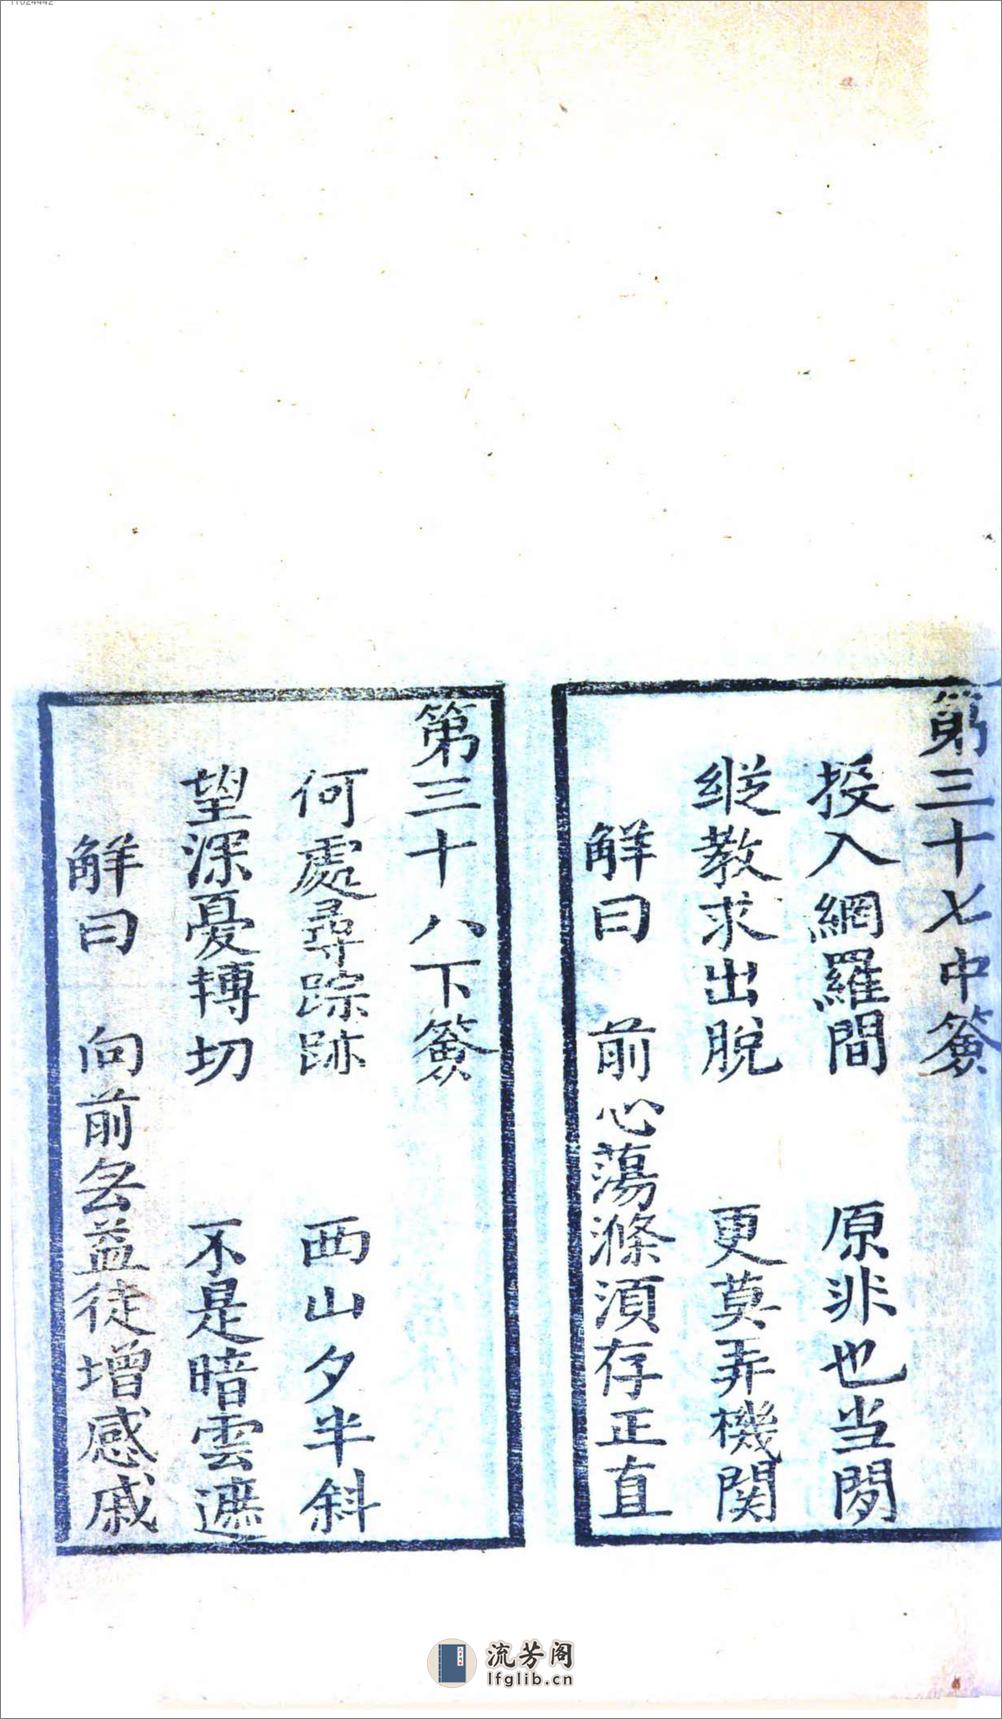 11024442
第三十七中簽
投入網羅間　原非也当閒
縱教求出脫　更莫弄機関
解曰　前心蕩滌須存正直
第三十八下簽
何處尋踪跡　西山夕半斜
望深憂轉切　不是暗雲遮
解曰　向前無益徒增感戚
流芳阁
lfglib.cn